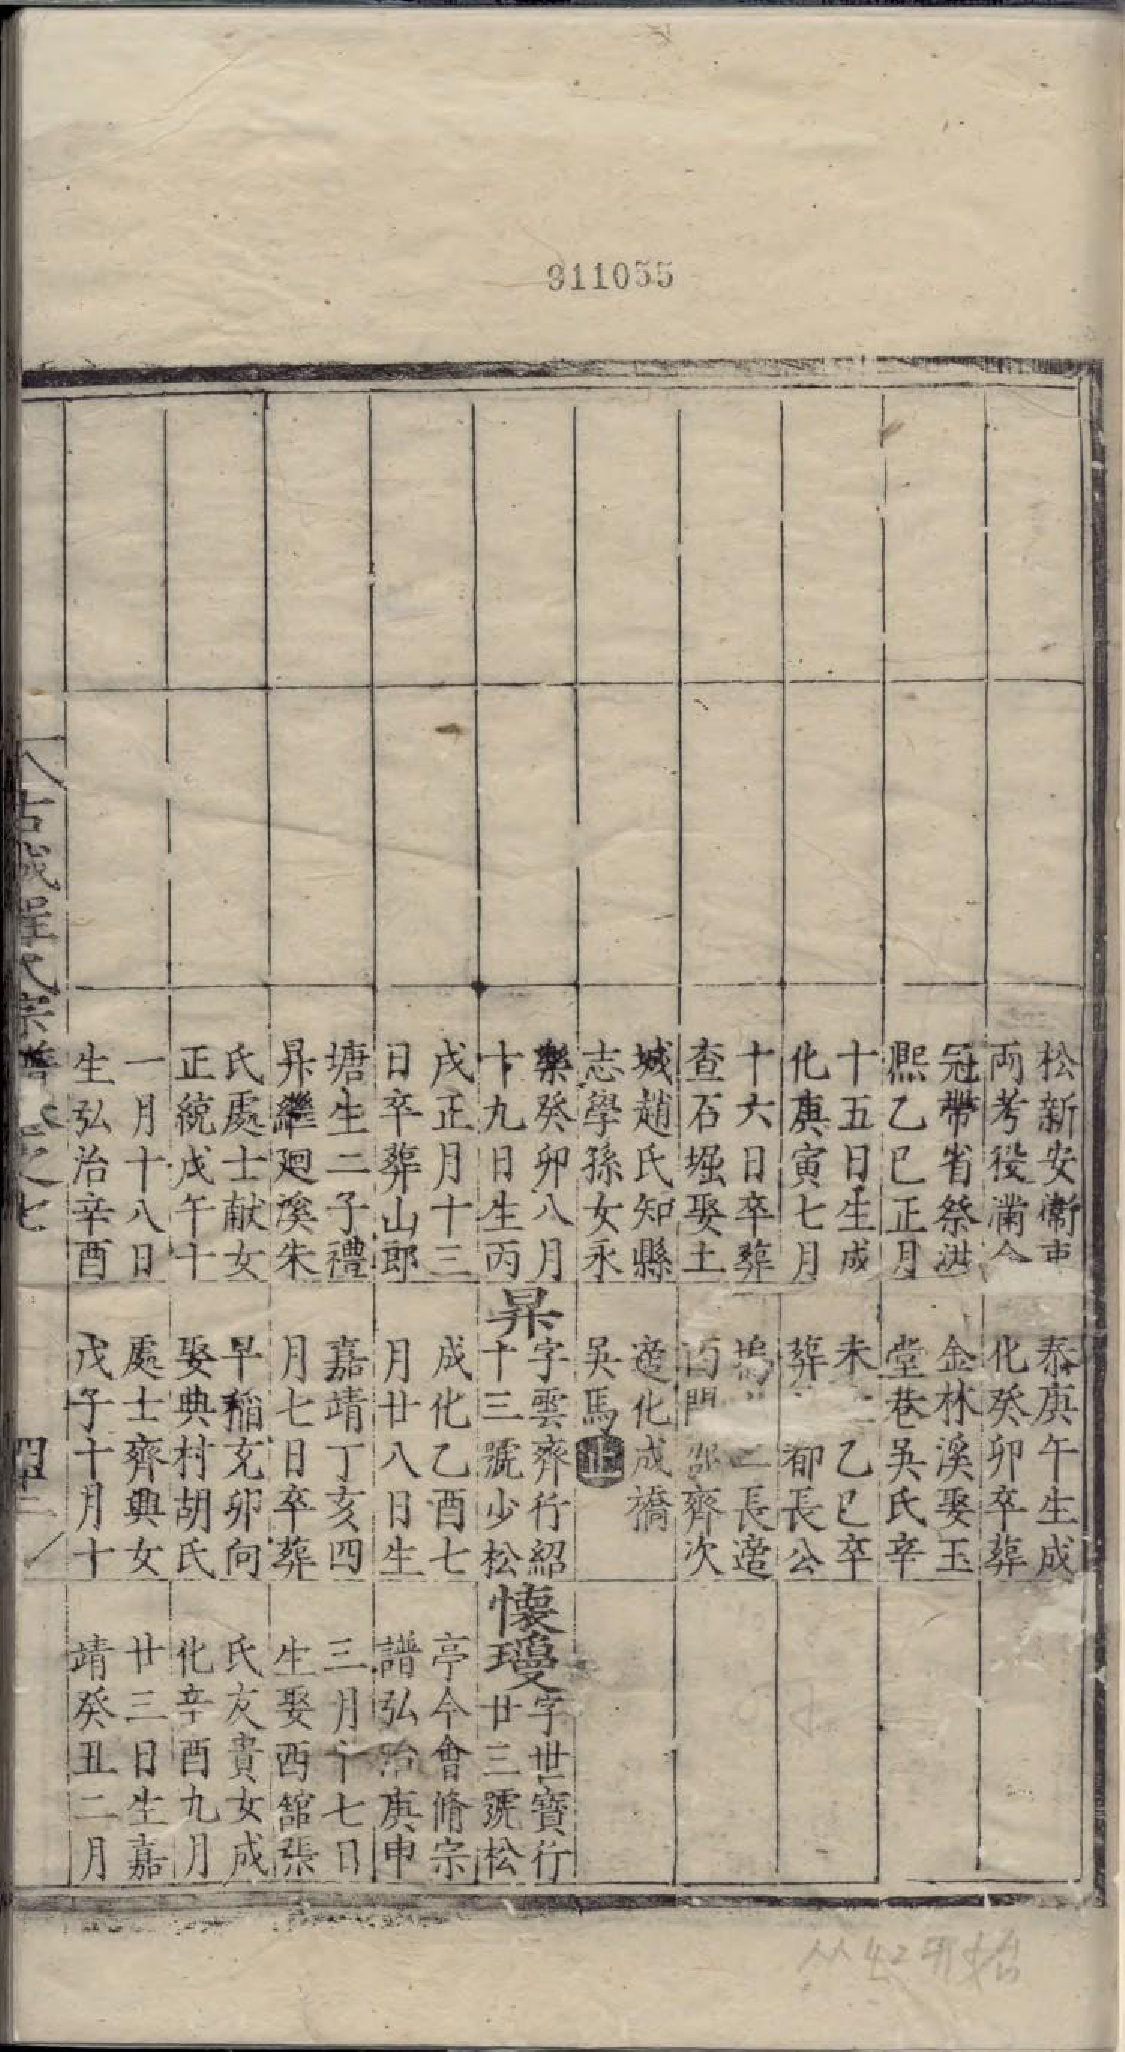 911055
松新安衞吏
両考役滿人
冠帶省祭洪
熈乙巳正月
十五日生成
化庚寅七月
十六日卒葬
查石堀娶土
城趙氏知縣
志學孫女永
樂癸卯八月
十九日生丙
戌正月十三
日卒葬山郎
塘生二子禮
昇繼廻溪朱
氏處士献女
正統戊午十
一月十八日
生弘治辛酉
泰庚午生成
化癸卯卒葬
金林溪娶玉
堂巷吳氏辛
未 乙巳卒
葬 郁長公
塢 二長適
西門 齊次
適化成橋
吳馬止
昇
字雲齊行紹
十三號少松
成化乙酉七
月廿八日生
嘉靖丁亥四
月七日卒葬
早稲充卯向
娶典村胡氏
處士齊興女
戊子十月十
懷瓊
字世寶行
廿三號松
亭今會脩宗
譜弘治庚申
三月十七日
生娶西舘張
氏友貴女成
化辛酉九月
廿三日生嘉
靖癸丑二月
古城程氏宗譜 卷之七
四十二
从42開始